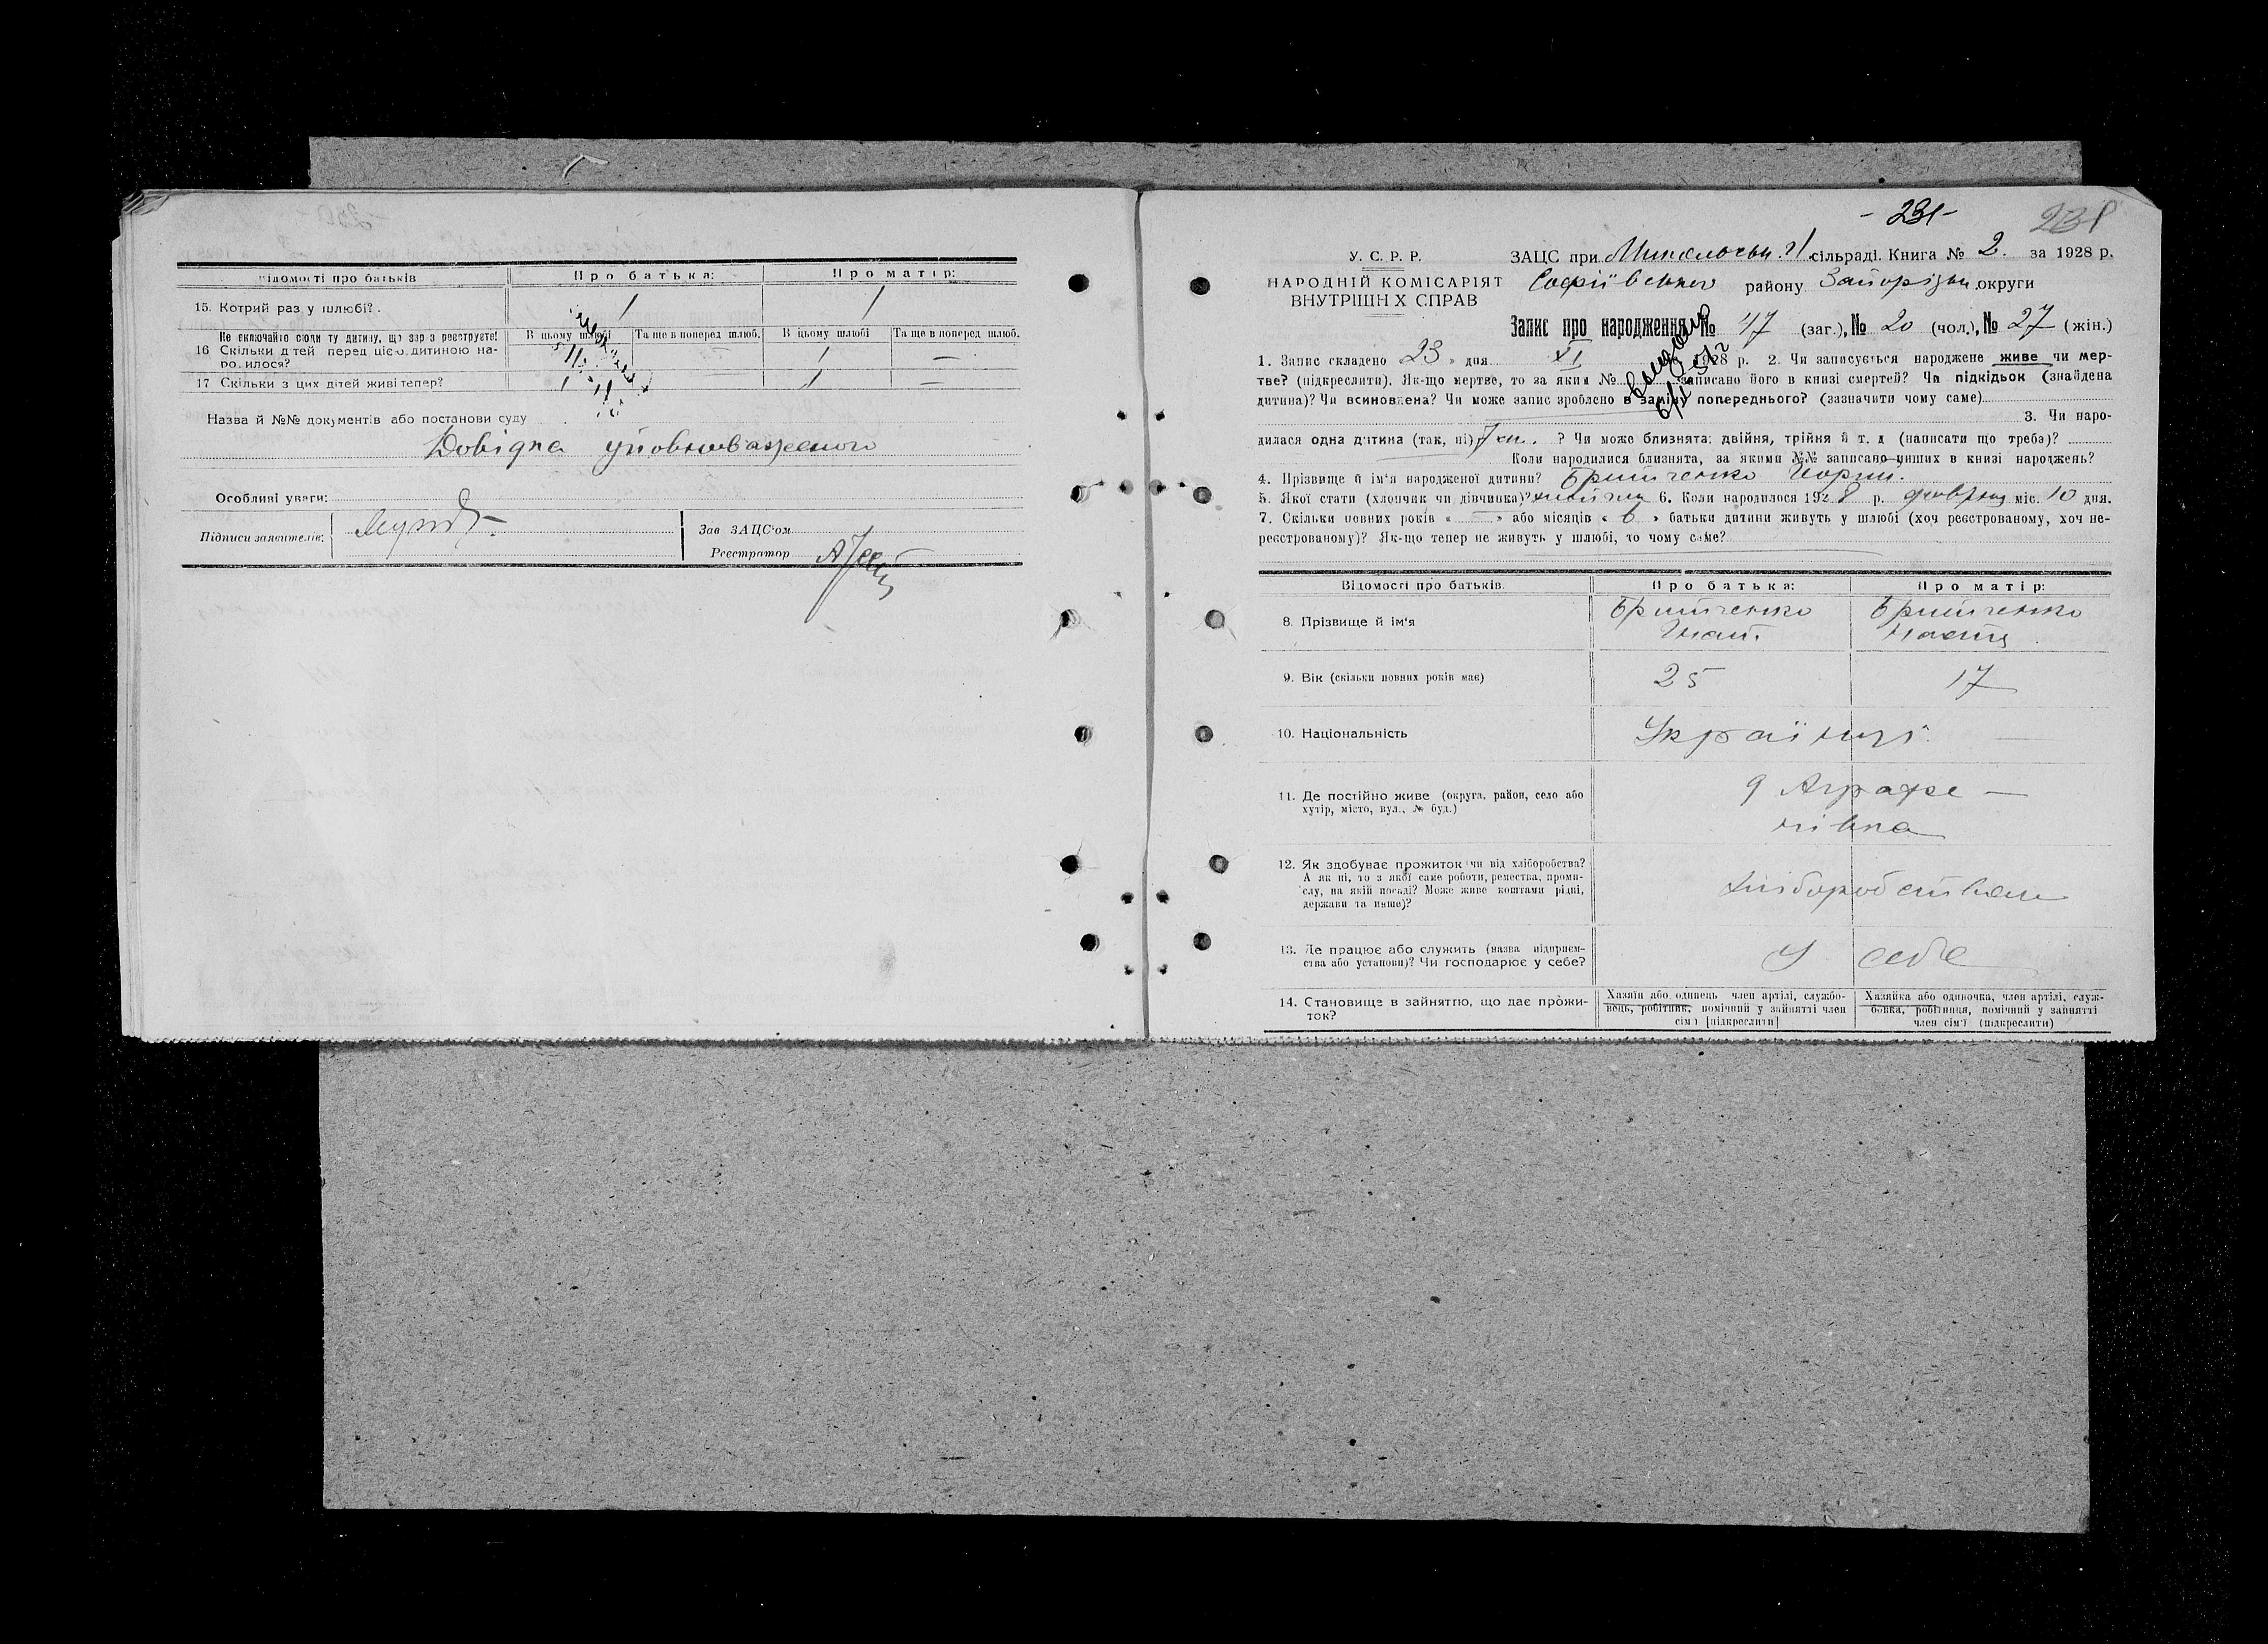 Відомості про батьків
Про батька:
Про матір:
15. Котрий раз у шлюбі?
1
1
Не включайте сюди ту дитину, що зараз реєструєте!
16 Скільки дітей перед цією дитиною народилося?
В цьому шлюбі
Та ще в поперед. шлюб.
В цьому шлюбі
Та ще в поперед. шлюб.
1
—
17 Скільки з цих дітей живі тепер?
1
1
—
Назва й №№ документів або постанови суду
Довідка уповноваженого
Особливі уваги:
Підписи заявителів:
Зав ЗАЦС'ом
Реєстратор
- 231 -
231
У. С. Р. Р.
НАРОДНІЙ КОМІСАРІЯТ
ВНУТРІШНІХ СПРАВ
ЗАЦС при сільраді. Книга № 2. за 1928 р.
Софіївського району Запорізьк. округи
Запис про народження № 47 (заг.), № 20 (чол.), № 27 (жін.)
1. Запис складено 23 » дня XI 1928 р. 2. Чи записується народжене живе чи мер-
тве? (підкреслити). Як-що мертве, то за яким № записано його в книзі смертей? Чи підкідьок (знайдена
дитина)? Чи всиновлена? Чи може запис зроблено в заміну попереднього? (зазначити чому саме)
3. Чи наро-
дилася одна дитина (так, ні) ? Чи може близнята: двійня, трійня й т. д (написати що треба)?
Коли народилися близнята, за якими №№ записано инших в книзі народжень?
4. Прізвище й ім'я народженої дитини?
5. Якої стати (хлопчик чи дівчинка)? 6. Коли народилося 1928 р. міс. 10 дня.
7. Скільки повних років « — » або місяців « 6 » батьки дитини живуть у шлюбі (хоч реєстрованому, хоч не-
реєстрованому)? Як-що тепер не живуть у шлюбі, то чому саме?
Відомості про батьків.
Про батька:
Про матір:
8. Прізвище й ім'я
9. Вік (скільки повних років має)
25
17
10. Національність
Українці
11. Де постійно живе (округа, район, село або
хутір, місто, вул., № буд.)
Аграфе —
нівка
12. Як здобуває прожиток чи від хліборобства?
А як ні, то з якої саме роботи, ремества, проми-
слу, на якій посаді? Може живе коштами рідні,
держави та инше)?
хліборобством
13. Де працює або служить (назва підприєм-
ства або установи)? Чи господарює у себе?
У себе
14. Становище в зайняттю, що дає прожи-
ток?
Хазяїн або одинець член артілі, службо-
вець, робітник, помічний у зайнятті член
сім'ї [підкреслити]
Хазяйка або одиночка, член артілі, служ-
бовка, робітниця, помічний у зайнятті
член сім'ї (підкреслити)